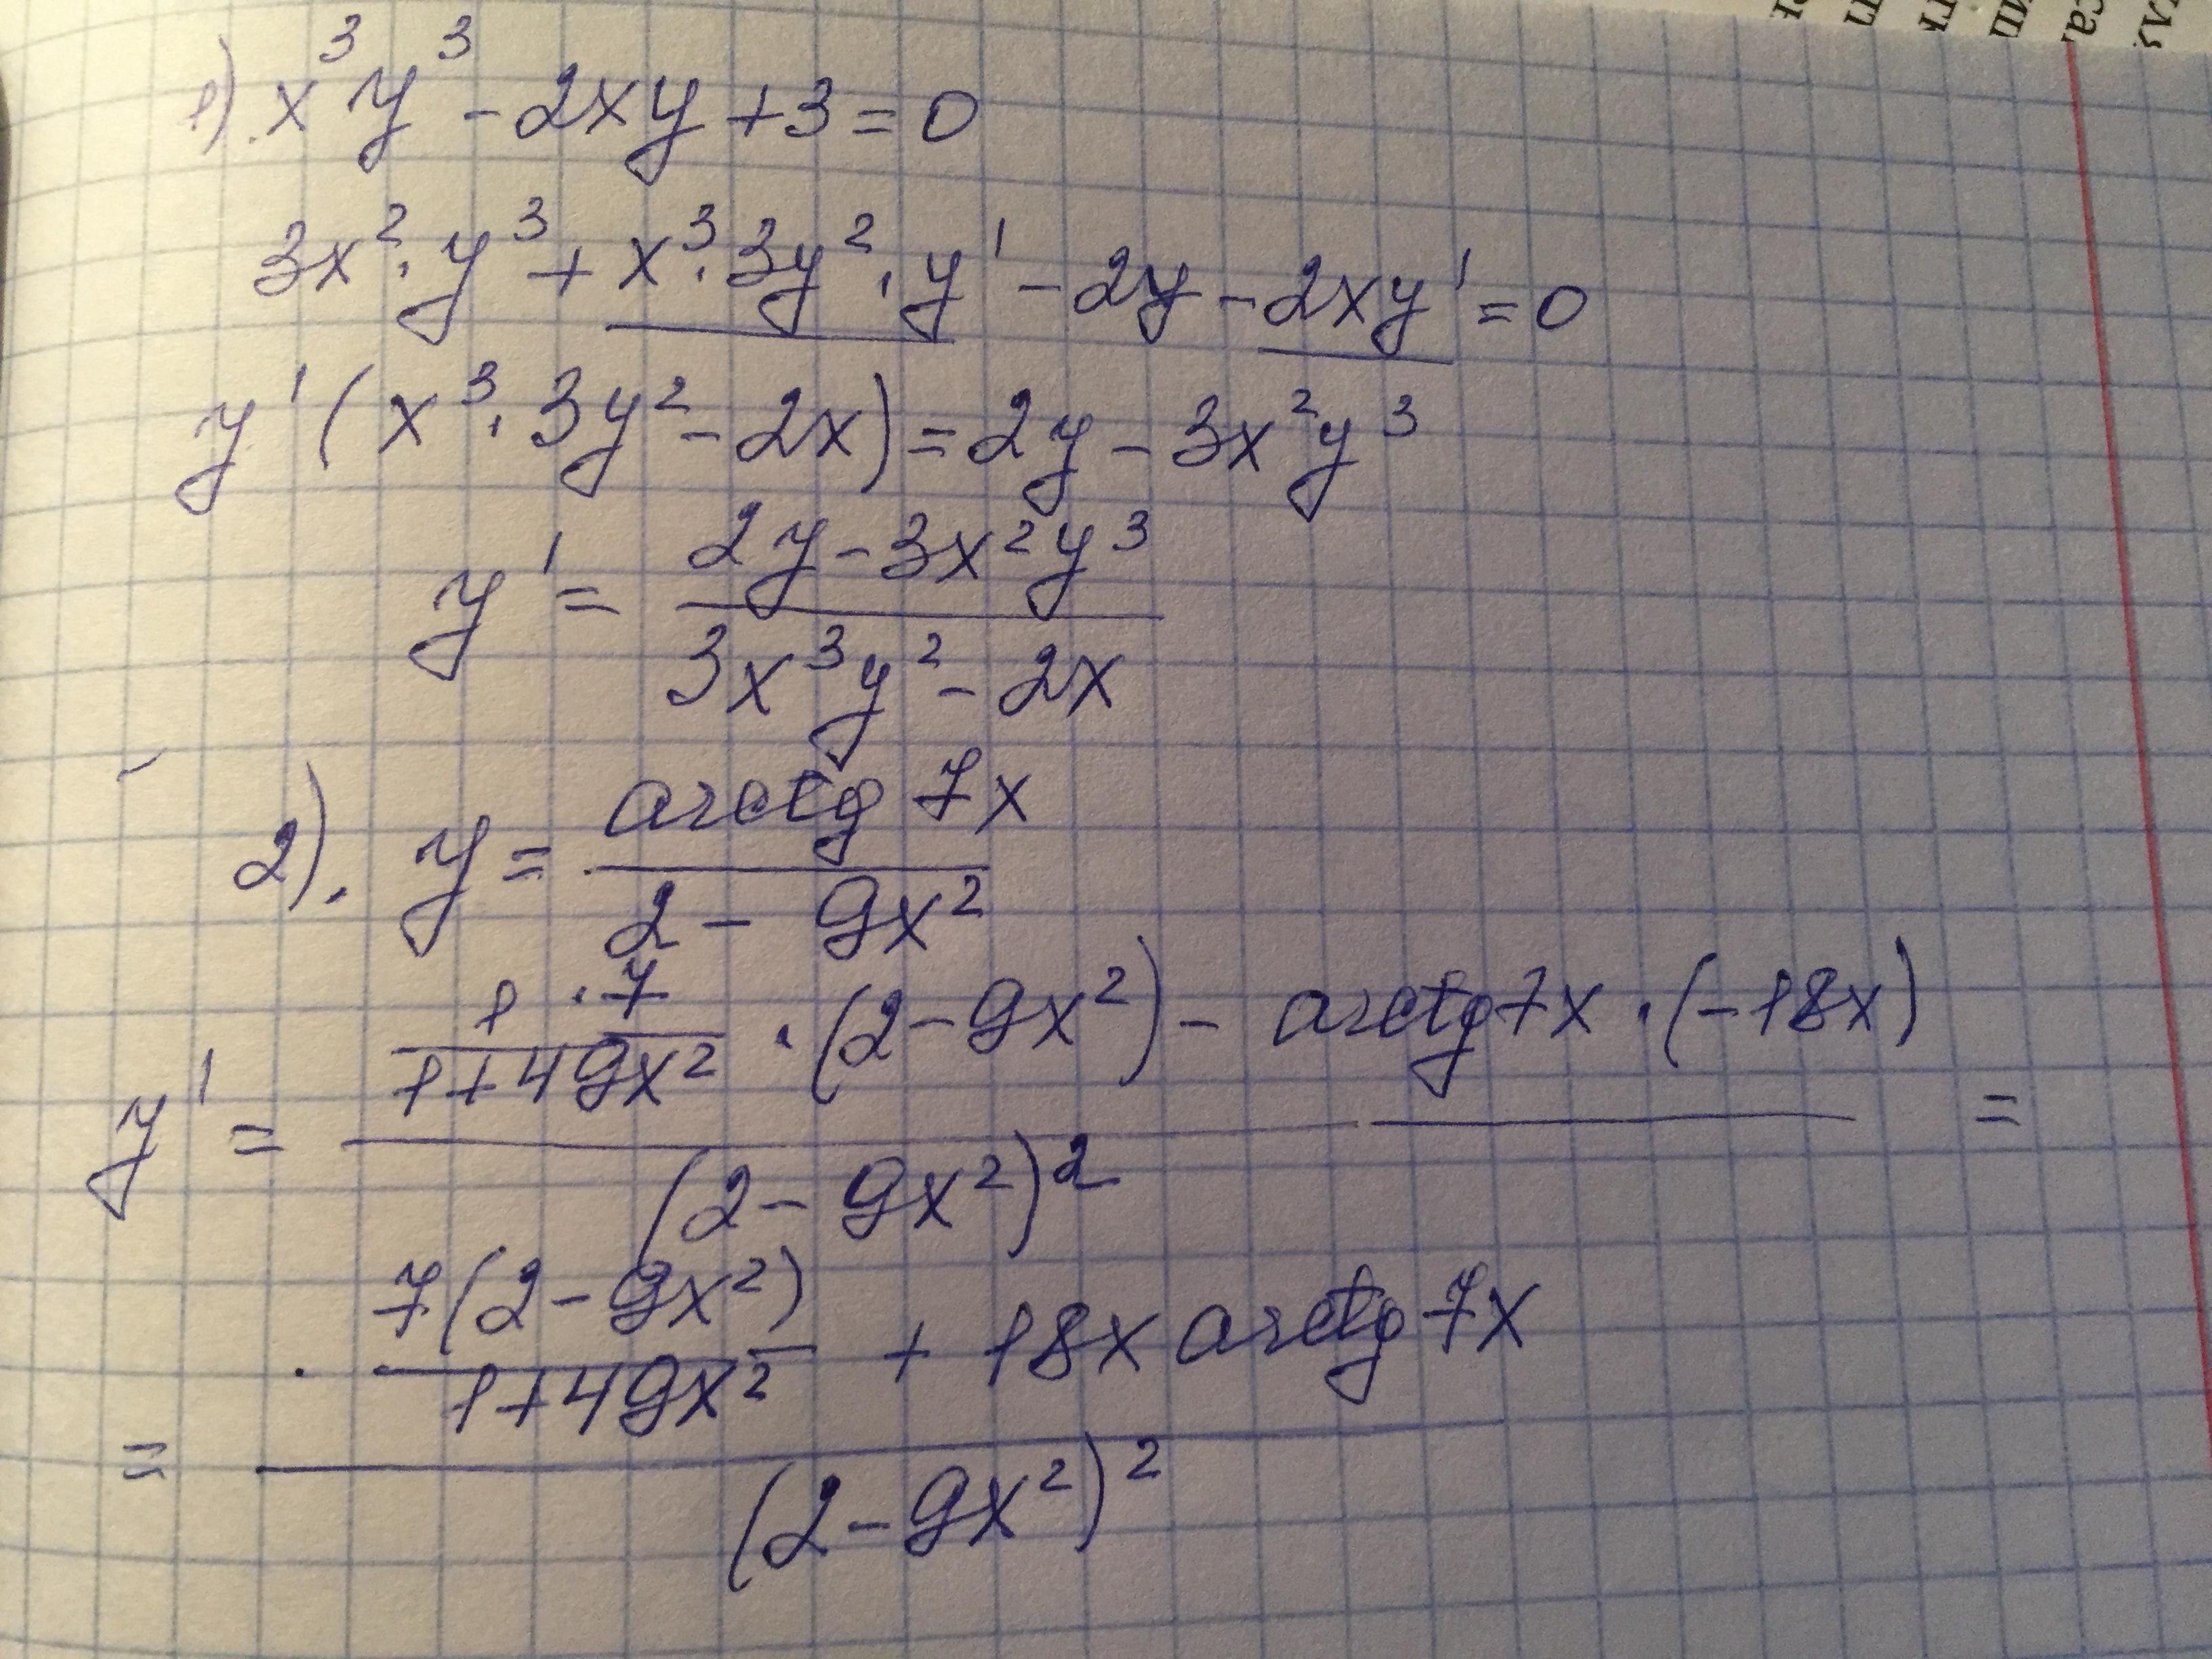 1) x³y³ - 2xy + 3 = 0
3x² · y³ + x³ · 3y² · y' - 2y - 2xy' = 0
y' ( x³ · 3y² - 2x ) = 2y - 3x²y³
y' = (2y - 3x²y³) / (3x³y² - 2x)
2). y = (arctg 7x) / (2 - 9x²)
y' = ((1 · 7) / (1 + 49x²) · (2 - 9x²) - arctg 7x · (-18x)) / (2 - 9x²)² =
= (7(2 - 9x²) / (1 + 49x²) + 18x arctg 7x) / (2 - 9x²)²